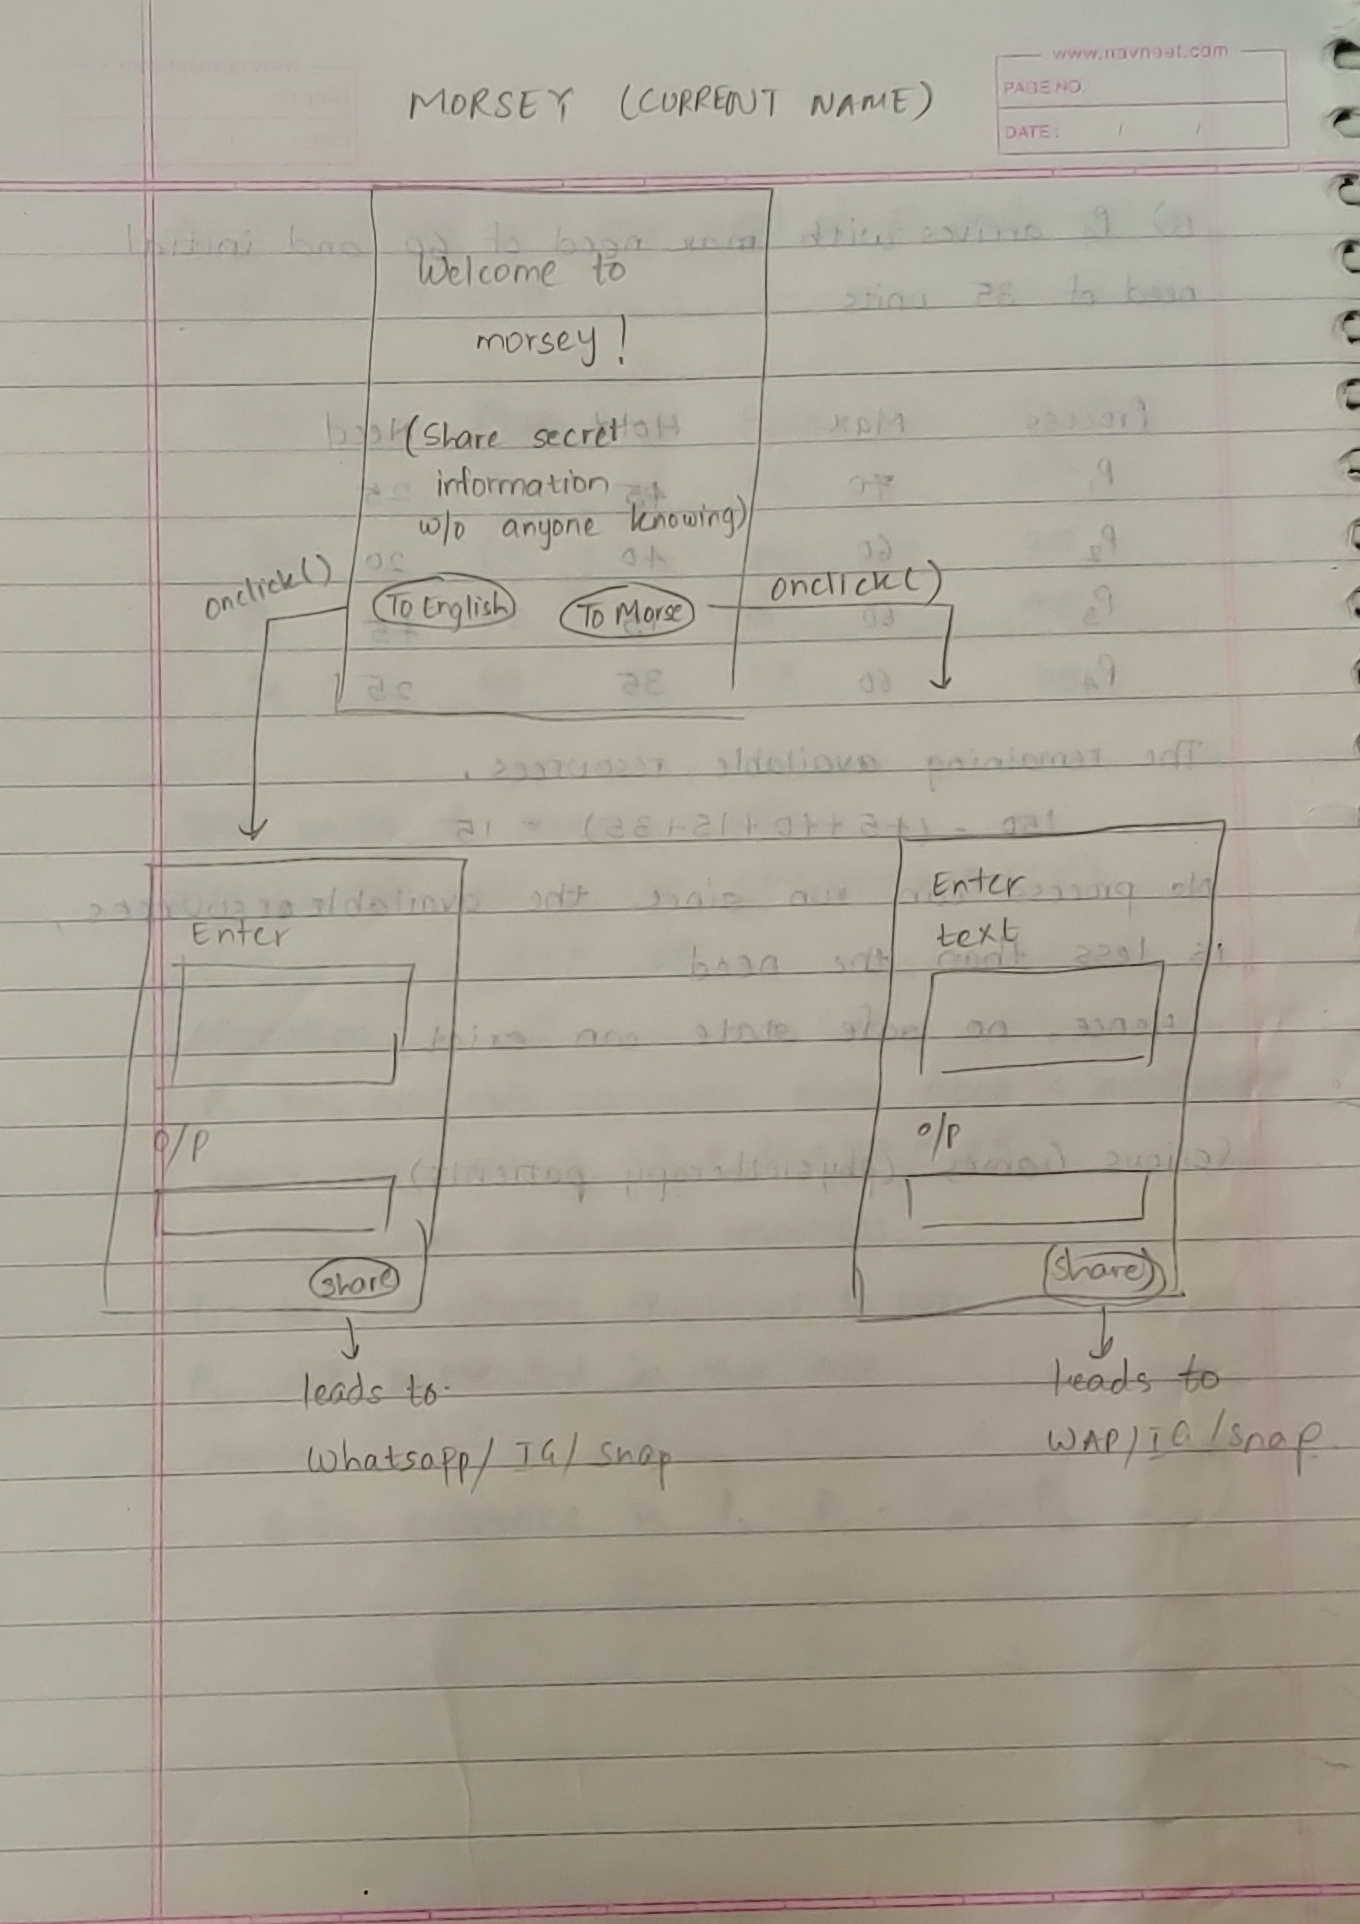 www.navneet.com
PAGE NO.
DATE: / /
MORSEY (CURRENT NAME)
Welcome to
morsey!
(Share secret
information
w/o anyone knowing)
onclick()
To English
To Morse
onclick()
Enter
O/P
Share
leads to
Whatsapp/ IG/ Snap
Enter
text
O/P
Share
leads to
WAP/IG/Snap